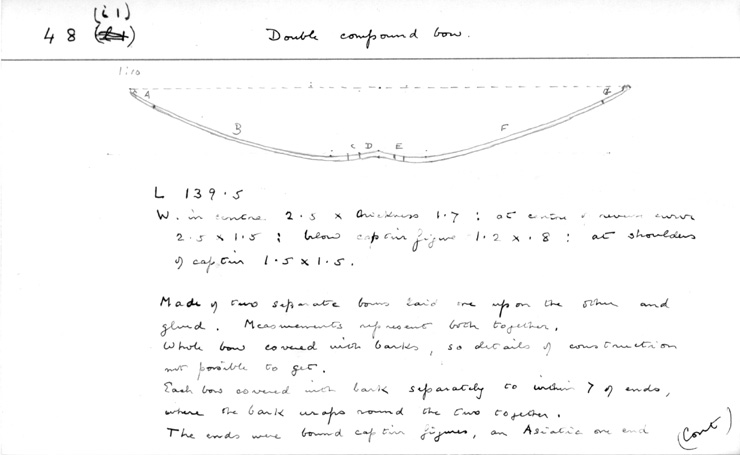 48 (i1) Double compound bow.
1:10
A B C D E F G
L 139.5
W. in centre 2.5 x thickness 1.7 : at centre of reverse curve
2.5 x 1.5 : below captive figure 1.2 x .8 : at shoulders
of captive 1.5 x 1.5.
Made of two separate bows laid one upon the other and
glued. Measurements represent both together.
Whole bow covered with barks, so details of construction
not possible to get.
Each bow covered with bark separately to within 7 of ends,
where the bark wraps round the two together.
The ends were bound captive figures, an Asiatic one end
(Cont)